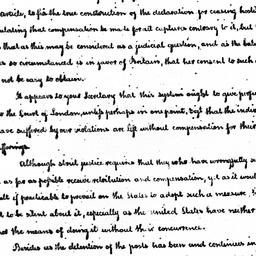 article, to fix the true construction of the declaration for ceasing hosti
ulating that compensation be made for all captures contrary to it, but
that as this may be considered as a judicial question, and as the bala
so circumstanced is in favor of Britain, that her consent to such
not be easy to obtain.
It appears to your Secretary that this system ought to give perfec
to the Court of London, unless perhaps in one point, viz that the indiv
have suffered by our violations are left without compensation for their
sufferings.
Although strict justice requires that they who have wrongfully su
as far as possible receive retribution and compensation, yet as it would
if practicable to prevail on the States to adopt such a measure,
to be silent about it, especially as the united States have neither
the means of doing it without their concurrence.
Besides as the detention of the posts has been and continues